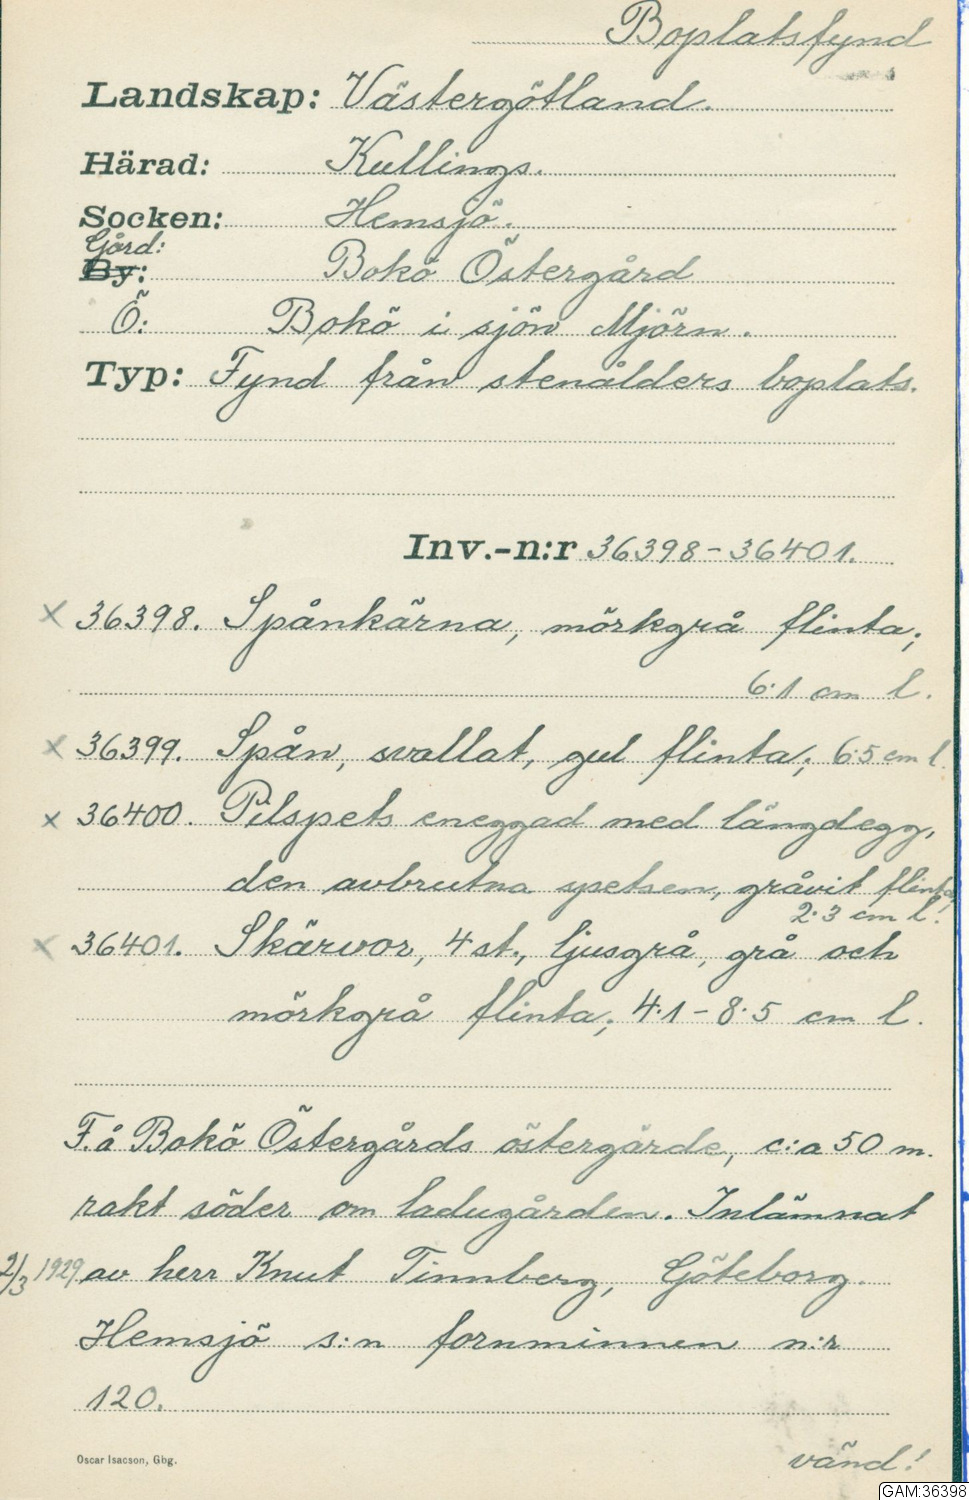 Boplatsfynd
Landskap: Västergötland.
Härad: Kullings.
Socken: Hemsjö.
Gård:
By: Bokö Östergård
Ö: Bokö i sjön Mjörn.
Typ: Fynd från stenålders boplats.
Inv.-n:r 36398-36401.
× 36398. Spånkärna, mörkgrå flinta;
6·1 cm l.
× 36399. Spån, svallat, gul flinta; 6·5 cm l.
× 36400. Pilspets eneggad med längdegg,
den avbrutna spetsen, gråvit flinta;
2·3 cm l.
× 36401. Skärvor, 4 st., ljusgrå, grå och
mörkgrå flinta; 4·1-8·5 cm l.
F. å Bokö Östergårds östergärde, c:a 50 m.
rakt söder om ladugården. Inlämnat
2/3 1929 av herr Knut Tinnberg, Göteborg.
Hemsjö s:n fornminnen n:r
120.
Oscar Isacson, Gbg.
vänd!
GAM:36398